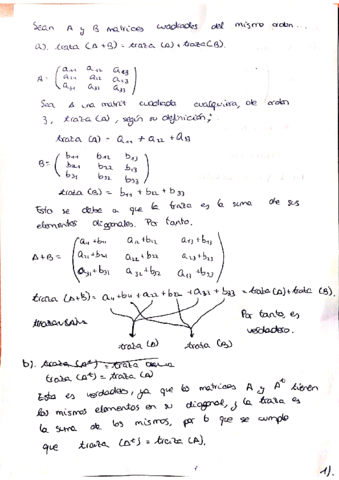 Sean A y B matrices cuadradas del mismo orden...
a). traza (A+B) = traza (A) + traza (B).
A = ( a11 a12 a13
a21 a22 a23
a31 a32 a33 )
Sea A una matriz cuadrada cualquiera, de orden
3, traza (A), según su definición;
traza (A) = a11 + a22 + a33
B = ( b11 b12 b13
b21 b22 b23
b31 b32 b33 )
traza (B) = b11 + b22 + b33
Esto se debe a que la traza es la suma de sus
elementos diagonales. Por tanto.
A+B = ( a11+b11 a12+b12 a13+b13
a21+b21 a22+b22 a23+b23
a31+b31 a32+b32 a33+b33 )
traza (A+B) = a11 + b11 + a22 + b22 + a33 + b33 = traza (A) + traza (B)
Por tanto es
verdadero.
traza (A) traza (B)
b). traza (A^t) = traza
traza (A^t) = traza (A)
Esto es verdadero, ya que las matrices A y A^t tienen
los mismos elementos en su diagonal, y la traza es
la suma de los mismos, por lo que se cumple
que traza (A^t) = traza (A).
1).